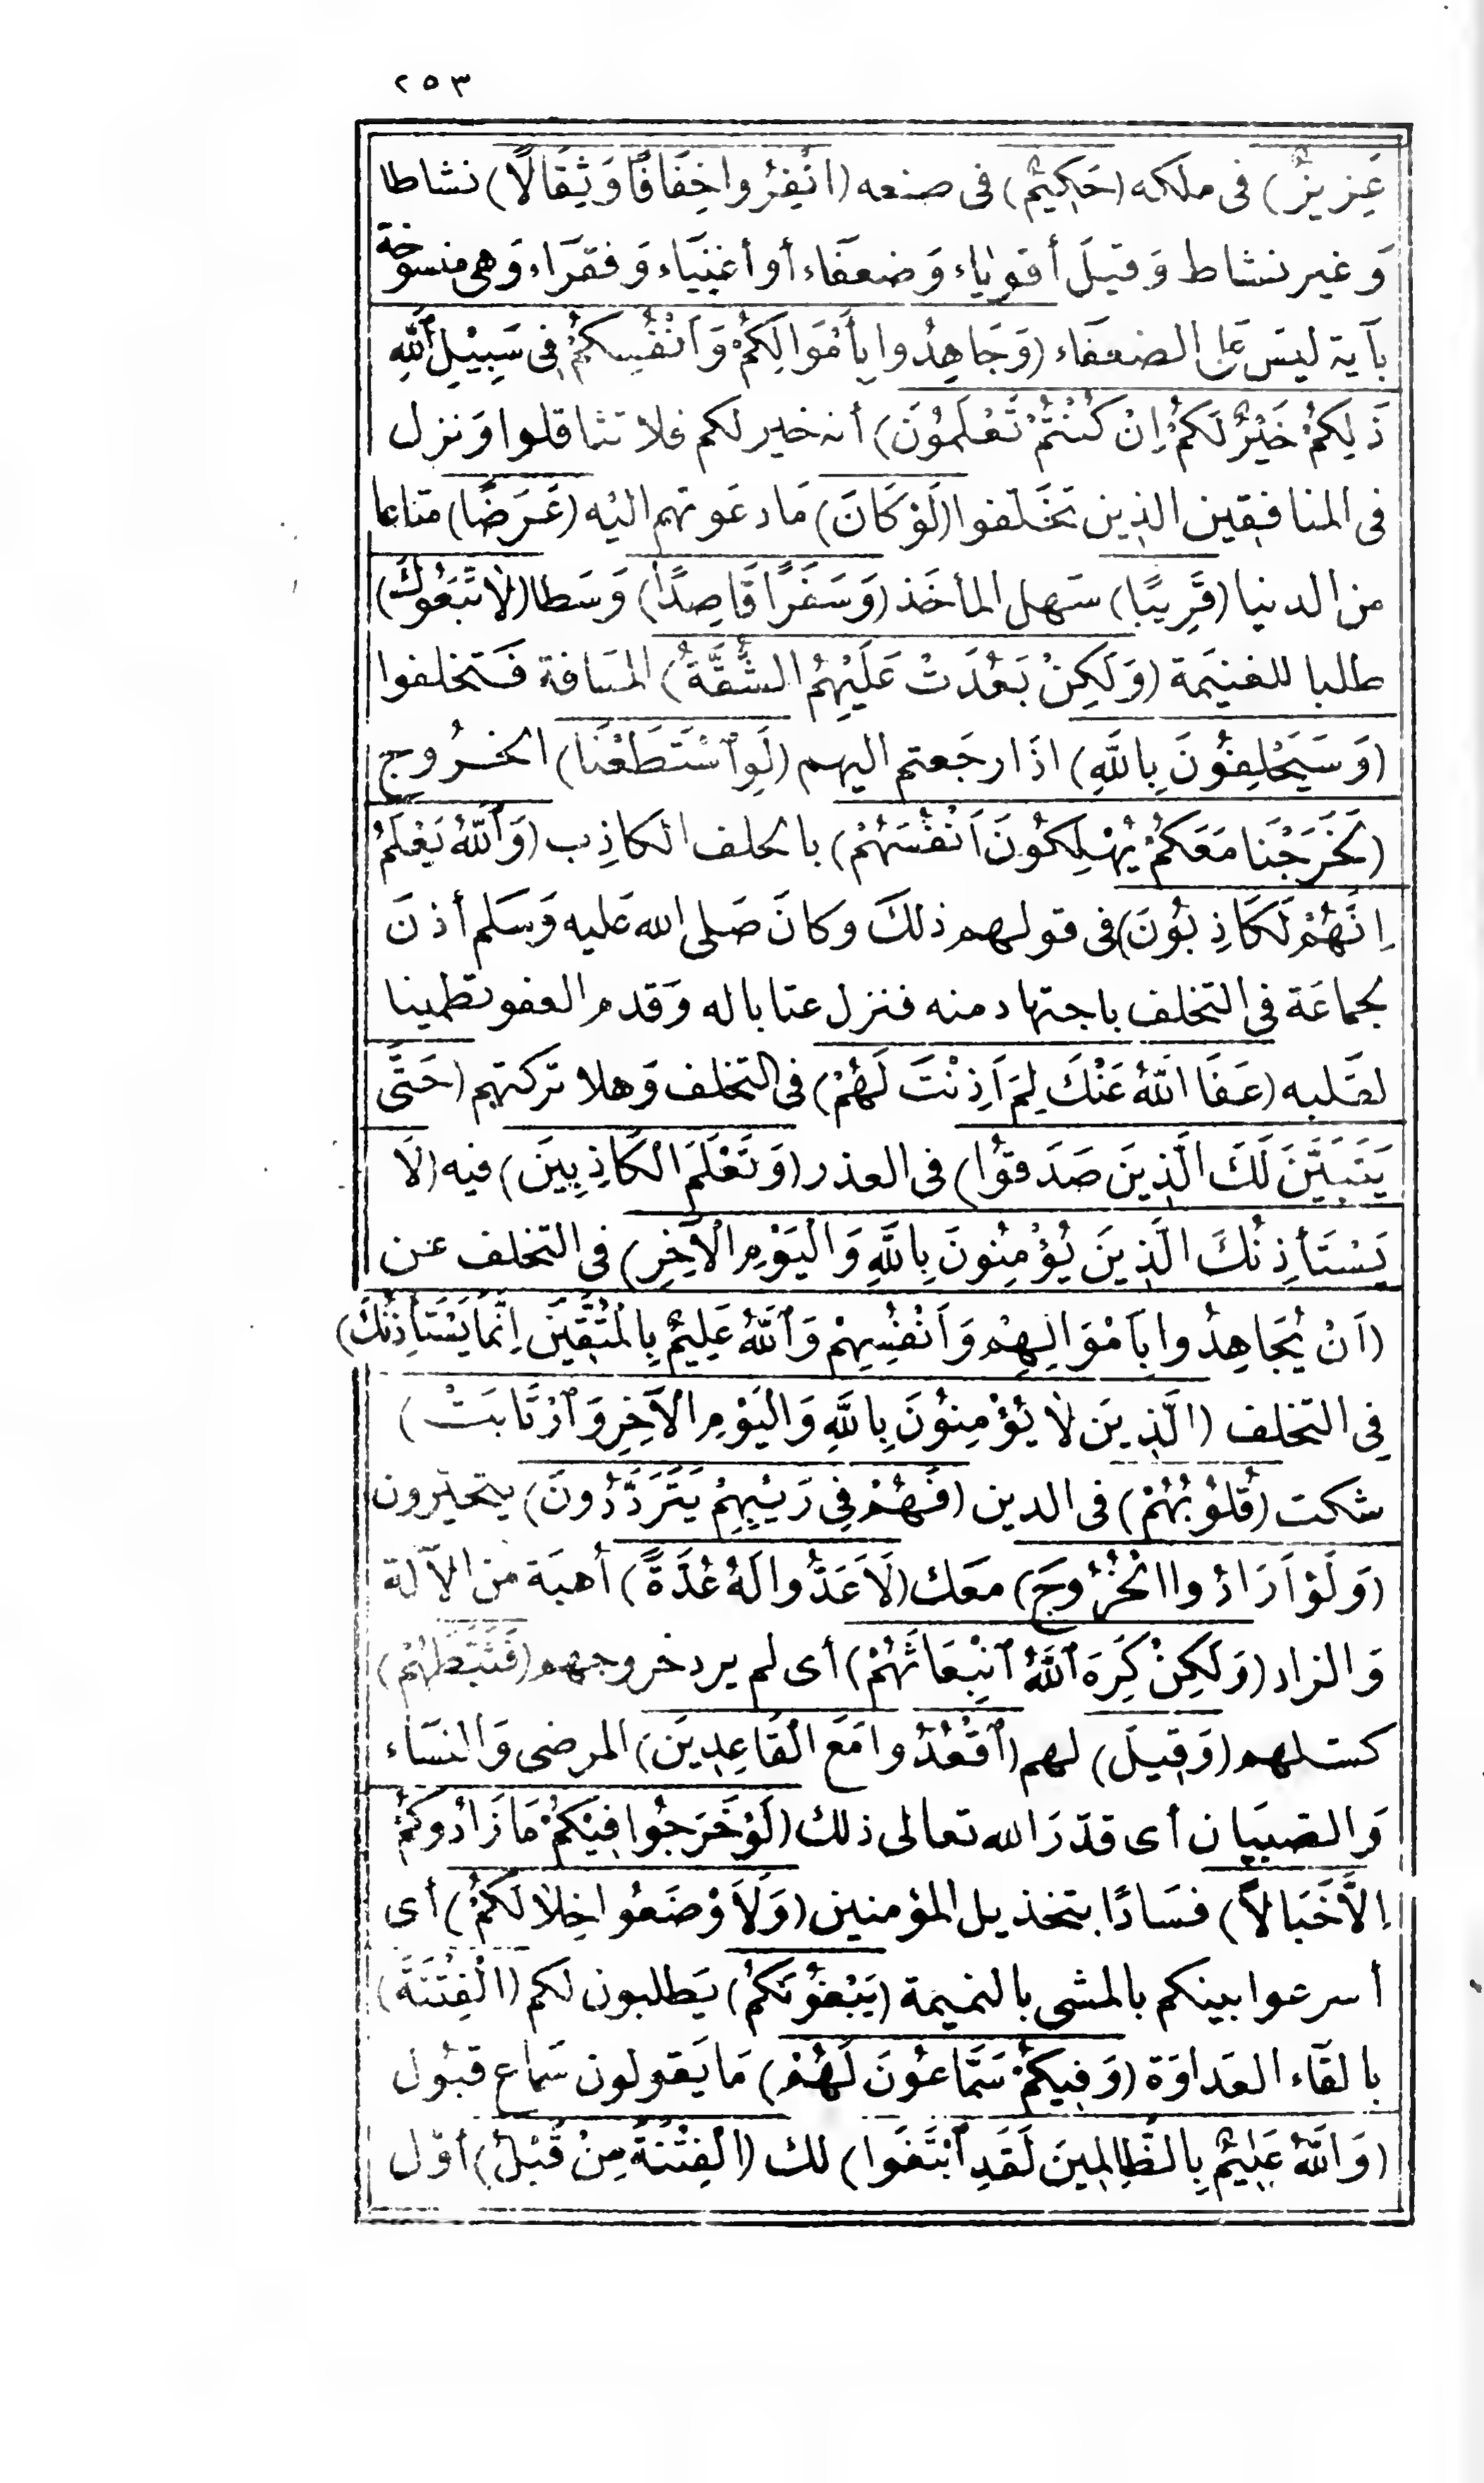 ٢٥٣
عَزِيزٌ) فى ملكه (حَكِيمٌ) فى صنعه (انْفِرُوا خِفَافًا وَثِقَالًا) نشاطا
وَغير نشاط وَقيلَ أقوياء وَضعفَاء أو أغنيَاء وَفقرَاء وَهى منسوخة
بآية ليسَ عَلى الضعفَاء (وَجَاهِدُوا بِأَمْوَالِكُمْ وَاَنْفُسِكُمْ فِى سَبِيْلِ ٱللهِ
ذَلِكُمْ خَيْرٌ لَكُمْ اِنْ كُنْتُمْ تَعْلَمُوْنَ) أنه خير لكم فلا تثاقلوا وَنزل
فى المنافقين الذين تخَلّفوا (لَوْ كَانَ) مَا دعَوتهم اليْه (عَرَضًا) متاعا
من الدنيا (قَرِيبًا) سَهل المأخَذ (وَسَفَرًا قَاصِدًا) وَسَطا (لَاتَّبَعُوكَ)
طلبا للغنيَمة (وَلَكِنْ بَعُدَتْ عَلَيْهِمُ الشُّقَّةُ) المسَافة فَتخلفوا
(وَسَيَحْلِفُوْنَ بِاللَّهِ) اذَا رجَعتم اليهم (لَوِٱسْتَطَعْنَا) الخرُوج
(لَخَرَجْنَا مَعَكُمْ يُهْلِكُوْنَ اَنْفُسَهُمْ) بالحلف الكاذِب (وَٱللهُ يَعْلَمُ
اِنَّهُمْ لَكَاذِبُوْنَ) فى قولهم ذلكَ وكانَ صَلى الله عَليه وَسَلم أذنَ
لجماعَة فى التخلف باجتهاد منه فنزل عتاباله وَقدم العفو تطمينا
لقَلبه (عَفَا اللهُ عَنْكَ لِمَ اَذِنْتَ لَهُمْ) فى التخلف وَهلا تركتهم (حَتَّى
يَتَبَيَّنَ لَكَ الَّذِينَ صَدَقوُا) فى العذر (وَتَعْلَمَ الْكَاذِبِينَ) فيه (لَا
يَسْتَأْذِنُكَ الَّذِينَ يُؤْمِنُونَ بِاللَّهِ وَالْيَوْمِ الْآخِرِ) فى التخلف عن
(اَنْ يُجَاهِدُوا بِاَمْوَالِهِمْ وَاَنْفُسِهِمْ وَٱللهُ عَلِيمٌ بِالْمُتَّقِيَنَ اِنَّمَا يَسْتَأْذِنُكَ)
فِى التخلف (الَّذِينَ لَا يُؤْمِنُونَ بِاللَّهِ وَالْيَوْمِ الْآخِرِ وَٱرْتَابَتْ)
شكت (قُلُوْبُهُمْ) فى الدين (فَهُمْ فِى رَيْبِهِمْ يَتَرَدَّدُونَ) يتحيّرون
(وَلَوْ اَرَادُوا الْخُرُوجَ) معَك (لَاَعَدُّوا لَهُ عُدَّةً) أهبَة من الآلة
وَالزاد (وَلَكِنْ كَرِهَ ٱللهُ ٱنْبِعَاثَهُمْ) أى لم يرد خروجهم (فَثَبَّطَهُمْ)
كسلهم (وَقِيلَ) لهم (ٱقْعُدُوا مَعَ الْقَاعِدِيَن) المرضى وَالنسَاء
وَالصبيَان أى قدّرَ الله تعالى ذلك (لَوْ خَرَجُوا فِيْكُمْ مَا زَادُوكُمْ
اِلَّا خَبَالًا) فسَادًا بتخذيل المؤمنين (وَلَاَوْضَعُوا خِلَالَكُمْ) أى
أسرعوا بينكم بالمشى بالنميمة (يَبْغُوْنَكُمْ) يَطلبون لكم (الْفِتْنَةَ)
بالقَاء العَداوَة (وَفِيكُمْ سَمَّاعُوْنَ لَهُمْ) مَا يَقولون سَماع قبُول
(وَاللهُ عَلِيْمٌ بِالظَّالِمِينَ لَقَدِ ٱبْتَغَوا) لك (الْفِتْنَةَ مِنْ قَبْلُ) أوّل